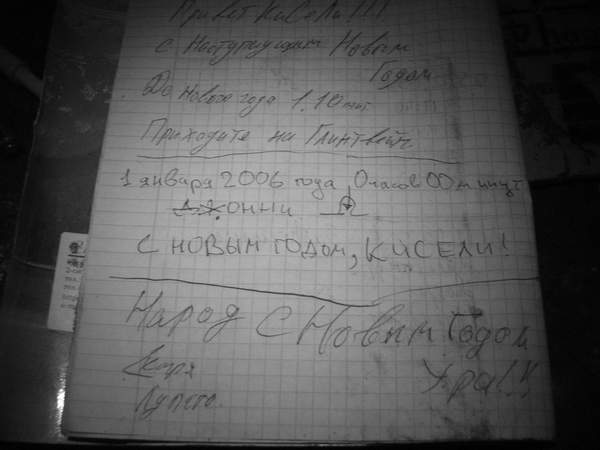 Привет Кисели!!!
с Наступающим Новым
Годом
До Нового года 1.10 мин.
Приходите на Глинтвейн
1 января 2006 года, 0 часов 00 минут
ОННИ
С НОВЫМ ГОДОМ, КИСЕЛИ!
Народ С Новым Годом
Ура!!!